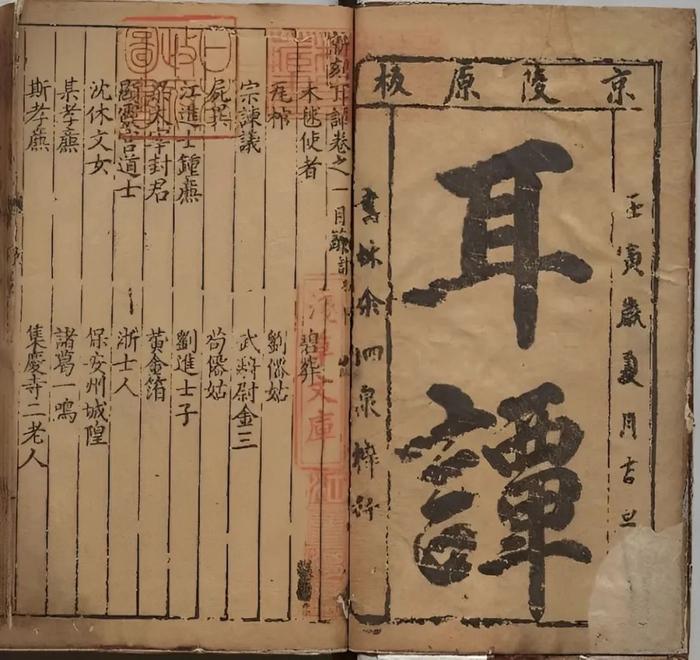 京陵原板
壬寅歲夏月吉旦
耳譚
書林余泗泉梓行
新刻耳譚卷之一目
木毬使者 碧葬
瓦棺 劉姑
宗諫議 武騎尉金三
荀姑
江進士 劉進士子
太宇封君 黃金箔
顯靈宮道士 浙士人
沈休文女 保安州城隍
某孝廉 諸葛一鳴
斯孝廉 集慶寺二老人
文庫